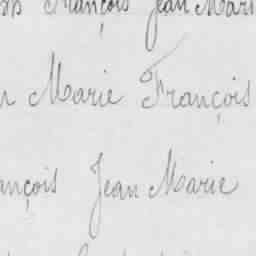 François Jean Mari
Marie François
ançois Jean Marie